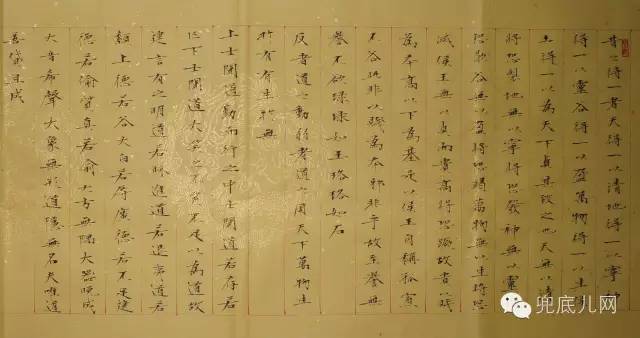 昔之得一者天得一以清地得一以寧神
得一以靈谷得一以盈萬物得一以生侯
王得一以為天下貞其致之也天無以清
將恐裂地無以寧將恐發神無以靈將
恐歇谷無以盈將恐竭萬物無以生將恐
滅侯王無以貞而貴高將恐蹶故貴以賤
為本高以下為基是以侯王自稱孤寡
不谷此非以賤為本邪非乎故至譽無
譽不欲琭琭如玉珞珞如石
反者道之動弱者道之用天下萬物生
於有有生於無
上士聞道勤而行之中士聞道若存若
亡下士聞道大笑之不笑不足以為道故
建言有之明道若昧進道若退夷道若
纇上德若谷大白若辱廣德若不足建
德若偷質真若渝大方無隅大器晚成
大音希聲大象無形道隱無名夫唯道
善貸且成
兜底儿网